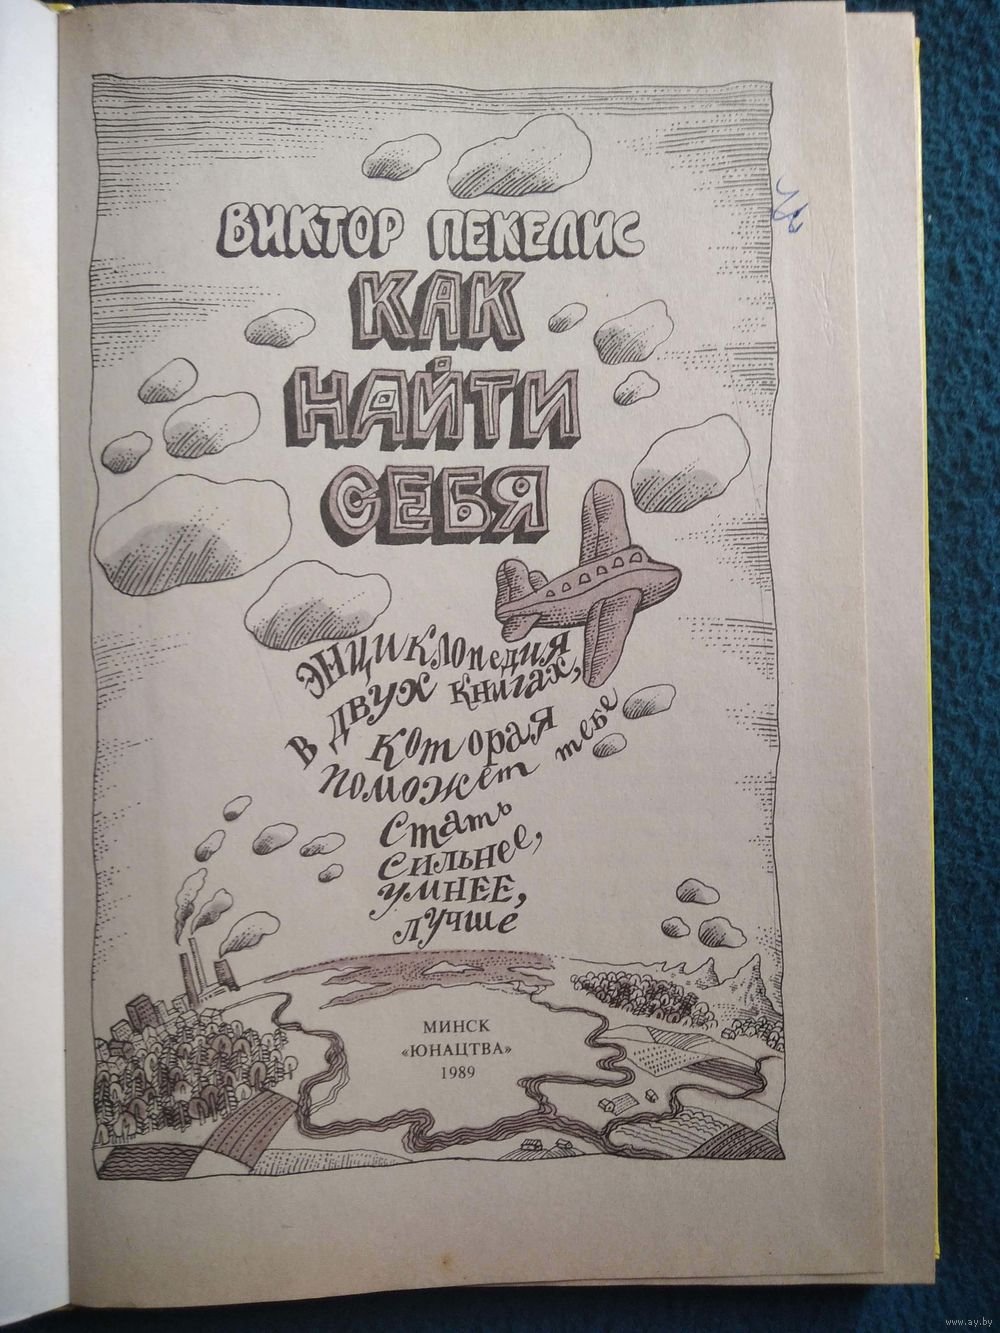 ВИКТОР ПЕКЕЛИС
КАК
НАЙТИ
СЕБЯ
ЭНЦИКЛОПЕДИЯ
В ДВУХ КНИГАХ,
КОТОРАЯ
ПОМОЖЕТ ТЕБЕ
СТАТЬ
СИЛЬНЕЕ,
УМНЕЕ,
ЛУЧШЕ
МИНСК
«ЮНАЦТВА»
1989
www.ay.by